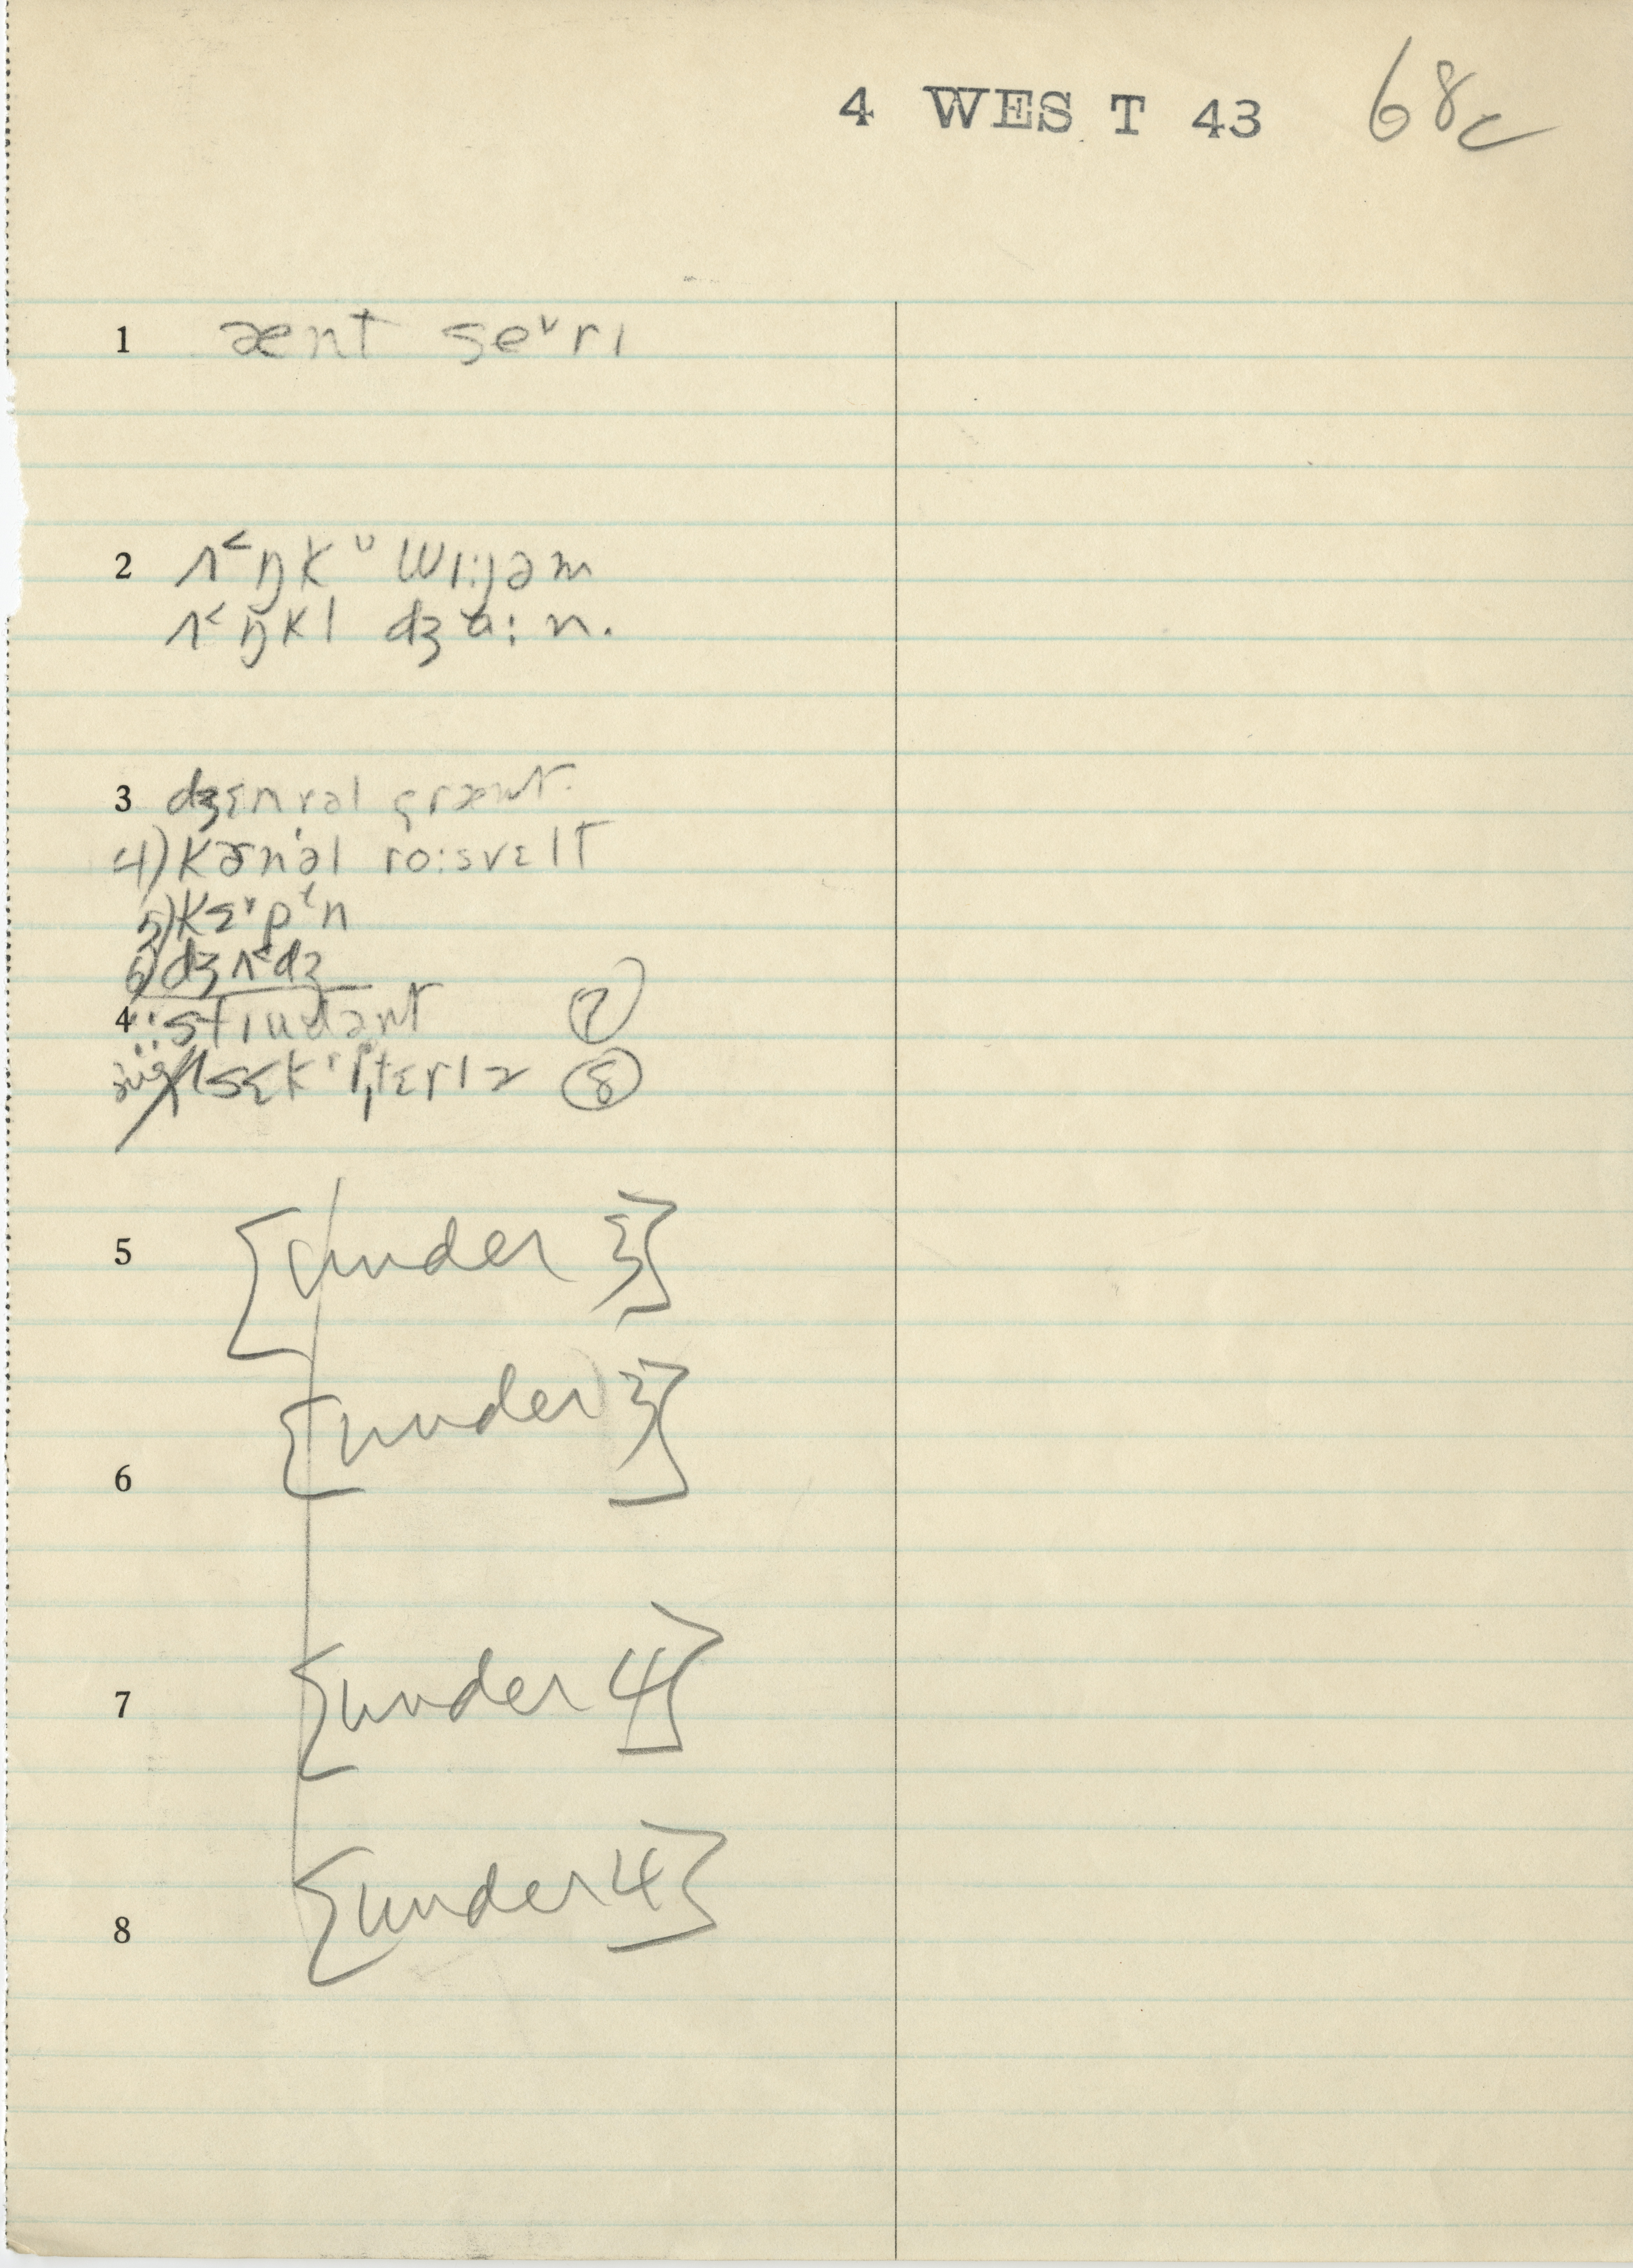 4 WEST 43 68c
1 ænt sɛ˅rɪ
2 ʌ˂ŋkᶷ wɪ:jəm
ʌ˂ŋkl dʒɑ:n.
3 dʒɛnrəl grænt.
4) kɚnəl ro:svɛlt
5) kɛ˅pᵗn
6) dʒʌ˂dʒ
4 stɪudənt ⑦
⑧
5 [under 3]
6 [under 3]
7 [under 4]
8 [under 4]